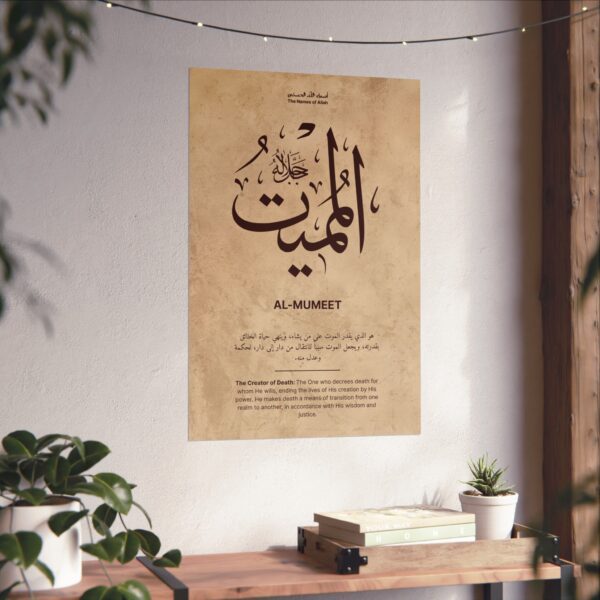 أسماء الله الحسنى
The Names of Allah
المميت
جل جلاله
AL-MUMEET
هو الذي يقدر الموت على من يشاء، وينهي حياة الخلائق
بقدرته، ويجعل الموت سببًا للانتقال من دار إلى دار، لحكمة
وعدل منه.
The Creator of Death: The One who decrees death for
whom He wills, ending the lives of His creation by His
power. He makes death a means of transition from one
realm to another, in accordance with His wisdom and
justice.
HOME